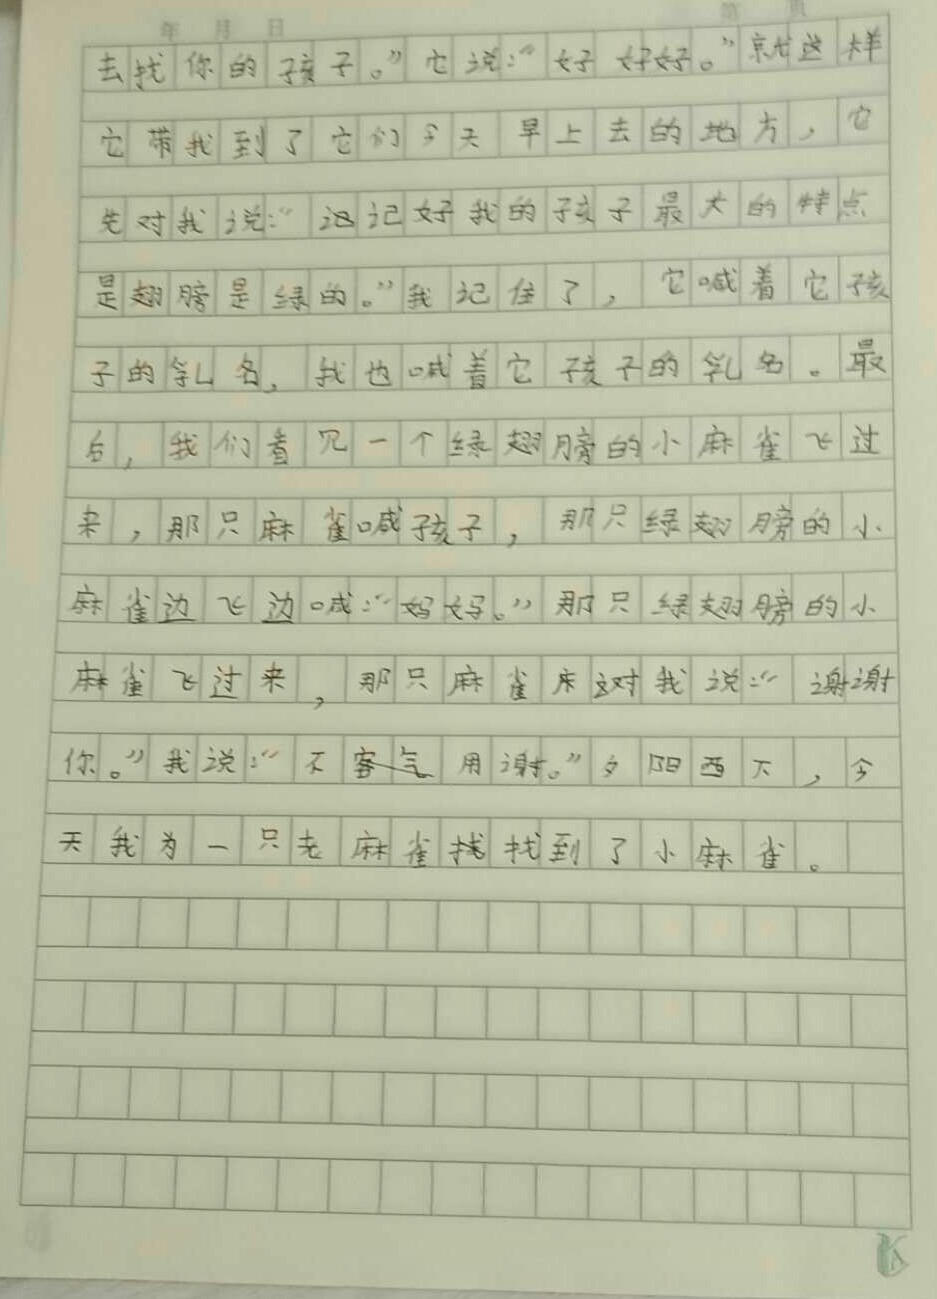 年 月 日 第 页
去找你的孩子。”它说:“好好好。”就这样
它带我到了它们今天早上去的地方,它
先对我说:“记好我的孩子最大的特点
是翅膀是绿的。”我记住了,它喊着它孩
子的乳名,我也喊着它孩子的乳名。最
后,我们看见一个绿翅膀的小麻雀飞过
来,那只麻雀喊孩子,那只绿翅膀的小
麻雀边飞边喊:“妈妈。”那只绿翅膀的小
麻雀飞过来,那只麻雀对我说:“谢谢
你。”我说:“不客气用谢。”夕阳西下,今
天我为一只老麻雀找找到了小麻雀。